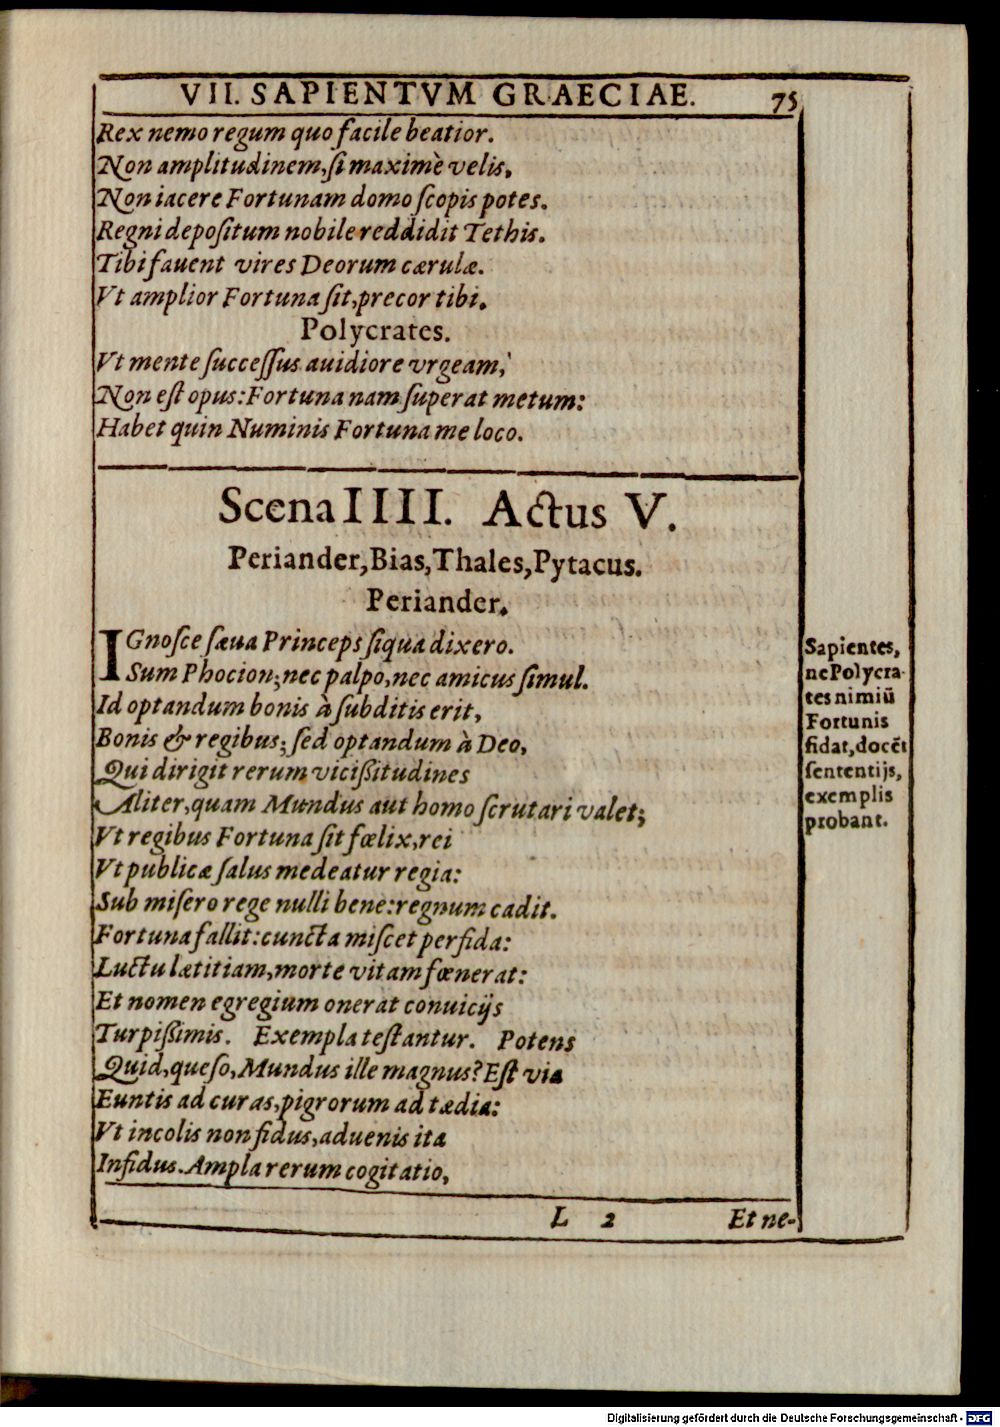 VII. SAPIENTVM GRAECIAE. 75
Rex nemo regum quo facile beatior.
Non amplitudinem, ſi maximè velis,
Non iacere Fortunam domo ſcopis potes.
Regni depoſitum nobile reddidit Tethis.
Tibi fauent vires Deorum cærulæ.
Vt amplior Fortuna ſit, precor tibi.
Polycrates.
Vt mente ſucceſſus auidiore vrgeam,
Non eſt opus: Fortuna nam ſuperat metum:
Habet quin Numinis Fortuna me loco.
Scena IIII. Actus V.
Periander, Bias, Thales, Pytacus.
Periander.
IGnoſce ſæua Princeps ſiqua dixero.
Sum Phocion; nec palpo, nec amicus ſimul.
Id optandum bonis à ſubditis erit,
Bonis & regibus; ſed optandum à Deo,
Qui dirigit rerum viciſſitudines
Aliter, quam Mundus aut homo ſcrutari valet;
Vt regibus Fortuna ſit fœlix, rei
Vt publicæ ſalus medeatur regia:
Sub miſero rege nulli bene: regnum cadit.
Fortuna fallit: cuncta miſcet perfida:
Luctu lætitiam, morte vitam fœnerat:
Et nomen egregium onerat conuicijs
Turpißimis. Exempla teſtantur. Potens
Quid, queſo, Mundus ille magnus? Eſt via
Euntis ad curas, pigrorum ad tædia:
Vt incolis non fidus, aduenis ita
Infidus. Ampla rerum cogitatio,
L 2 Et ne-
Sapientes,
ne Polycra-
tes nimiū
Fortunis
fidat, docēt
ſententijs,
exemplis
probant.
Digitalisierung gefördert durch die Deutsche Forschungsgemeinschaft - DFG